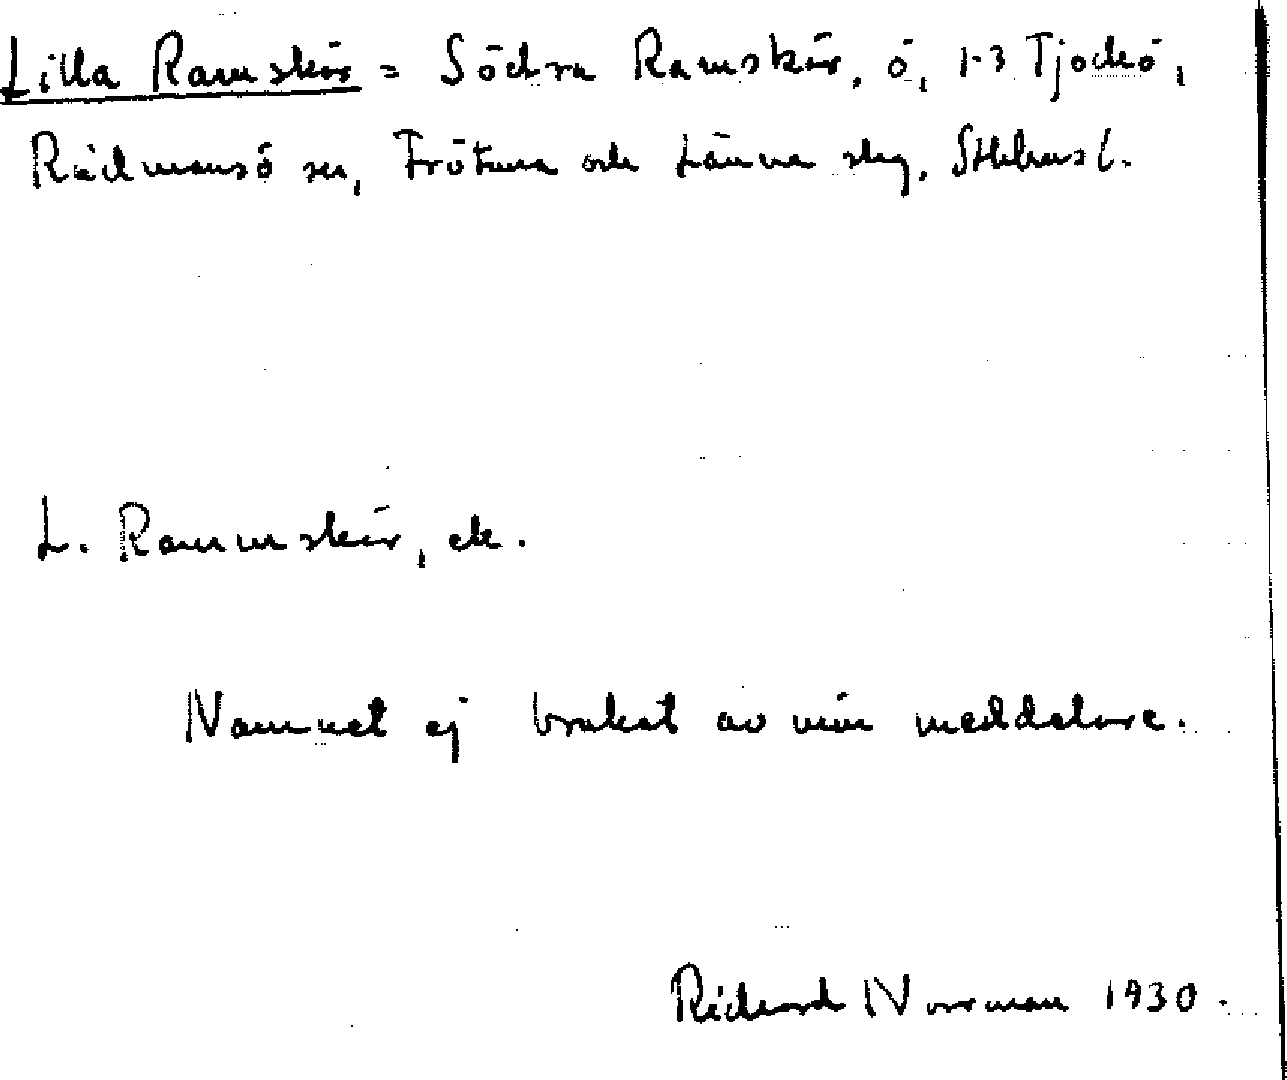 Lilla Ramskär = Södra Ramskär, ö, 1-3 Tjockö,
Rådmansö sn, Frötuna och Länna skg, Sthlms l.
L. Rammskär, ek.
Namnet ej brukat av min meddelare.
Richard Norrman 1930.